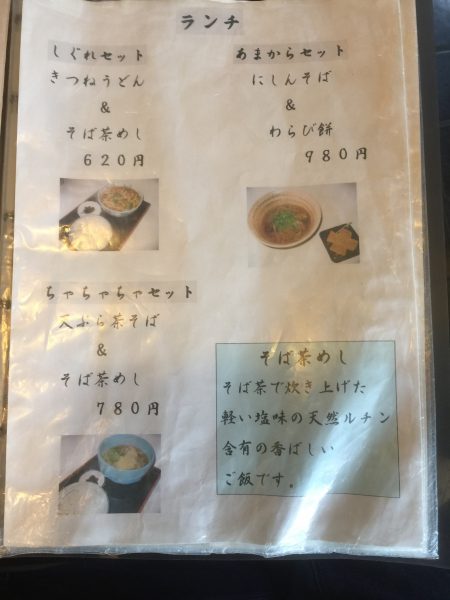 ランチ
しぐれセット
きつねうどん
&
そば茶めし
620円
あまからセット
にしんそば
&
わらび餅
980円
ちゃちゃちゃセット
天ぷら茶そば
&
そば茶めし
780円
そば茶めし
そば茶で炊き上げた
軽い塩味の天然ルチン
含有の香ばしい
ご飯です。